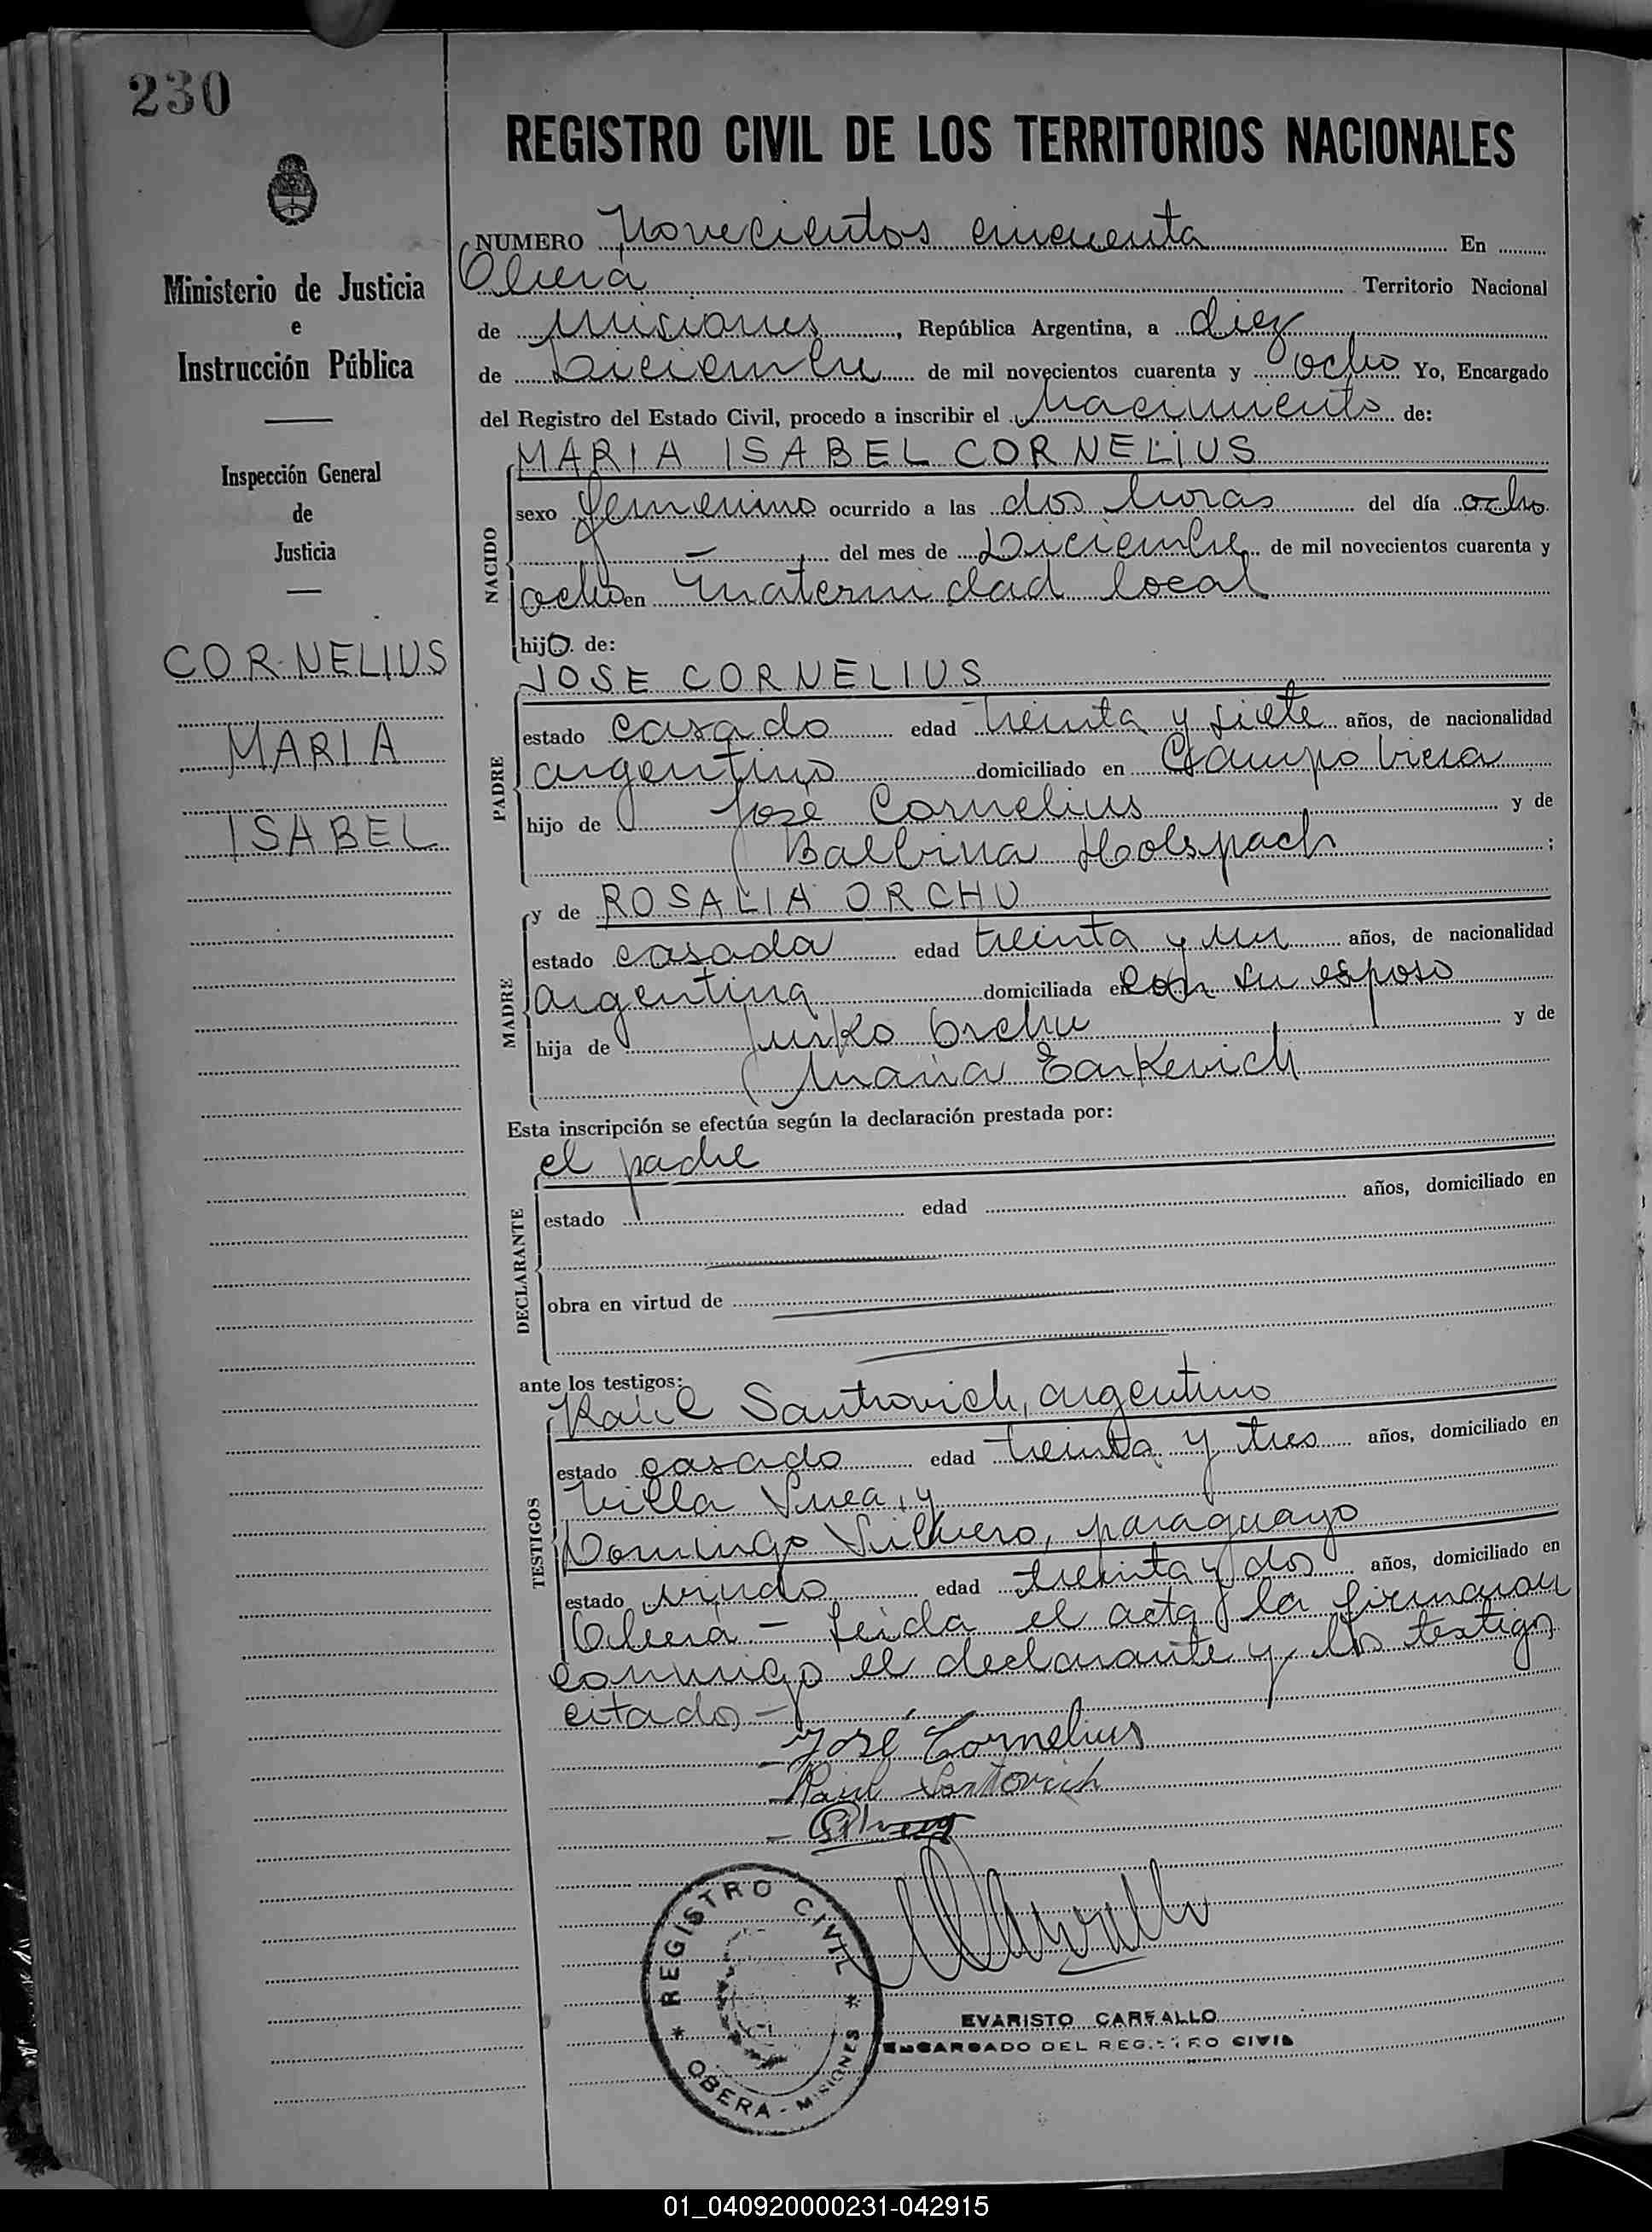 230
REGISTRO CIVIL DE LOS TERRITORIOS NACIONALES
Ministerio de Justicia
e
Instrucción Pública
Inspección General
de
Justicia
CORNELIUS
MARIA
ISABEL
NUMERO Novecientos cincuenta En
Oberá Territorio Nacional
de Misiones, República Argentina, a diez
de Diciembre de mil novecientos cuarenta y ocho Yo, Encargado
del Registro del Estado Civil, procedo a inscribir el Nacimiento de:
NACIDO
MARIA ISABEL CORNELIUS
sexo femenino ocurrido a las dos horas del día ocho
— del mes de Diciembre de mil novecientos cuarenta y
ocho en Maternidad local
hijO de:
PADRE
JOSE CORNELIUS
estado casado edad treinta y siete años, de nacionalidad
argentino domiciliado en Campo Viera
hijo de José Cornelius y de
Balbina Holspach;
MADRE
y de ROSALIA ORCHU
estado casada edad treinta y un años, de nacionalidad
argentina domiciliada en con su esposo
hija de Jurko Orchu y de
Maria Earkevich
Esta inscripción se efectúa según la declaración prestada por:
DECLARANTE
el padre
estado edad años, domiciliado en
obra en virtud de
ante los testigos:
TESTIGOS
Raúl Santrovich, argentino
estado casado edad treinta y tres años, domiciliado en
Villa y
Domingo Silvero, paraguayo
estado viudo edad treinta y dos años, domiciliado en
Oberá.- Leida el acta la firmaron
conmigo el declarante y los testigos
citados-
José Cornelius
Raúl
REGISTRO CIVIL
OBERA - MISIONES
EVARISTO CARFALLO
ENCARGADO DEL REGISTRO CIVIL
01_040920000231-042915